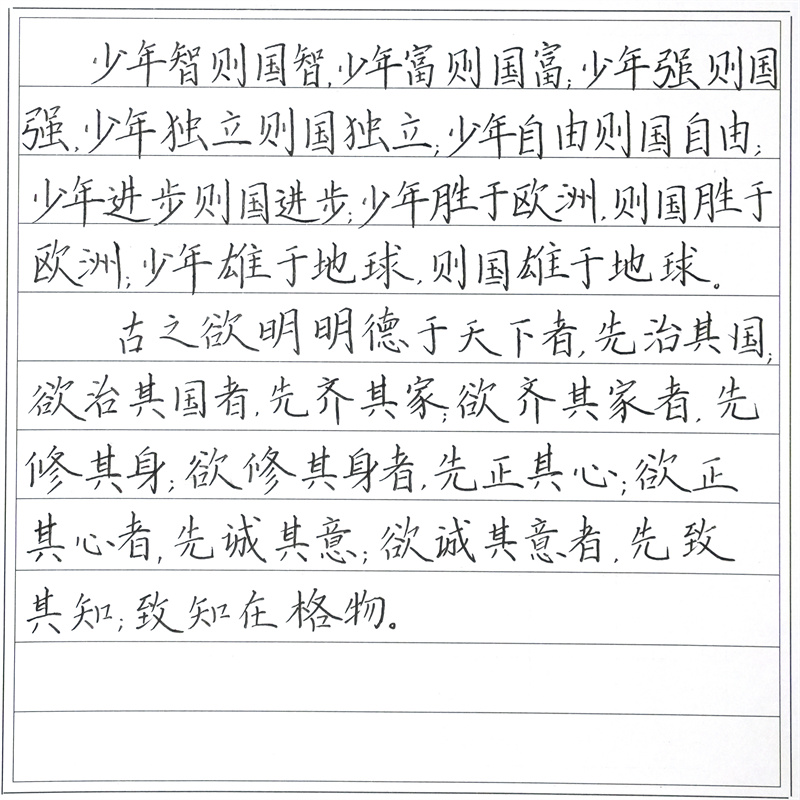 少年智则国智,少年富则国富;少年强则国
强,少年独立则国独立;少年自由则国自由;
少年进步则国进步;少年胜于欧洲,则国胜于
欧洲;少年雄于地球,则国雄于地球。
古之欲明明德于天下者,先治其国;
欲治其国者,先齐其家;欲齐其家者,先
修其身;欲修其身者,先正其心;欲正
其心者,先诚其意;欲诚其意者,先致
其知;致知在格物。